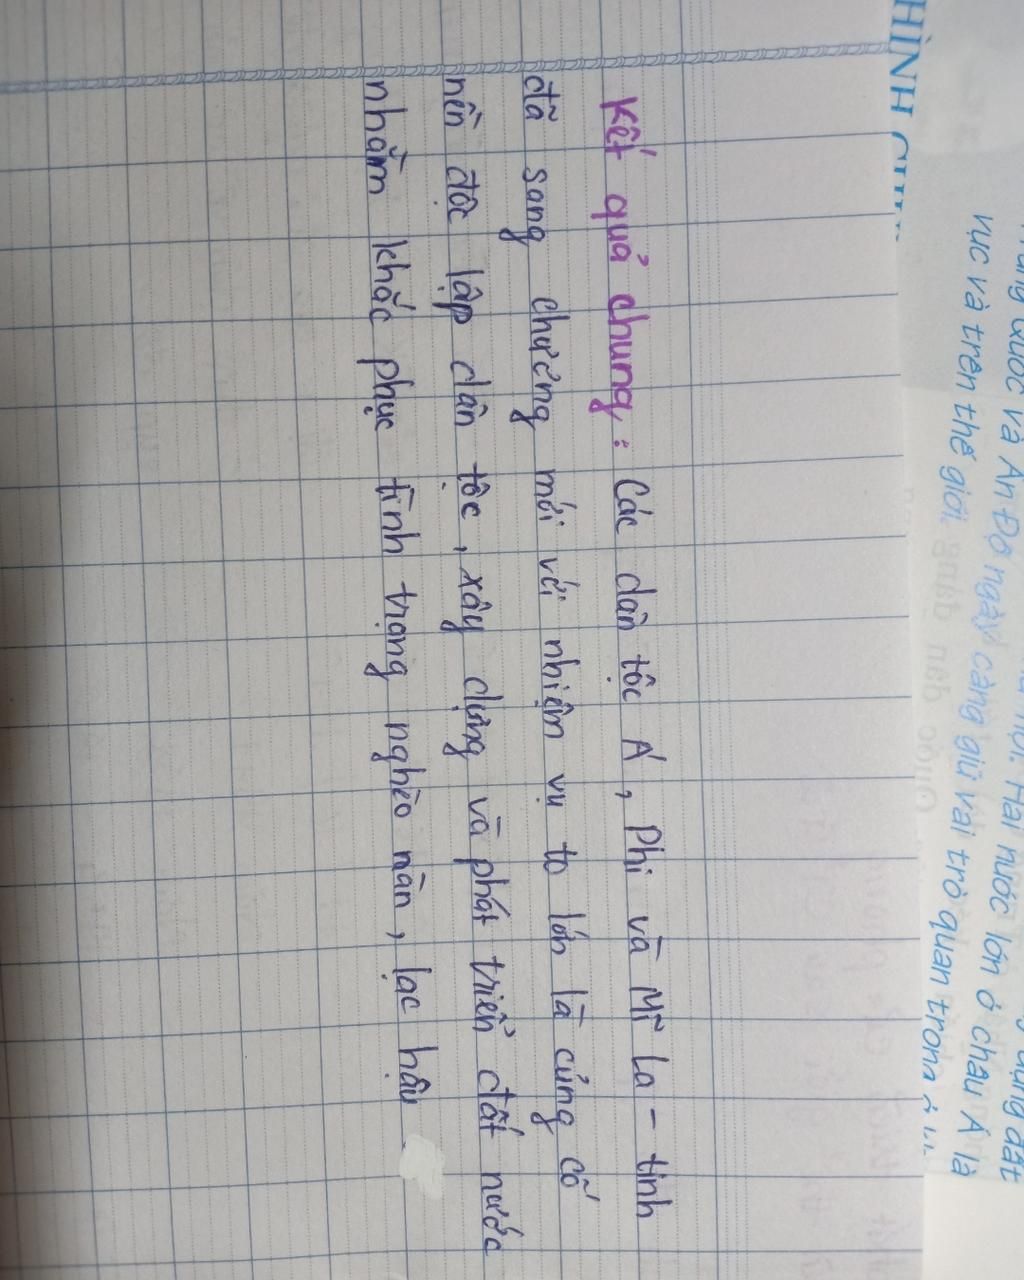 HÌNH
Trung Quốc và Ấn Độ ngày càng giữ vai trò quan trong
vực và trên thế giới.
Hai nước lớn ở châu Á là
Kết quả chung: Các dân tộc Á, Phi và Mĩ La-tinh
đã sang chương mới với nhiệm vụ to lớn là củng cố
nền độc lập dân tộc, xây dựng và phát triển đất nước
nhằm khắc phục tình trạng nghèo nàn, lạc hậu